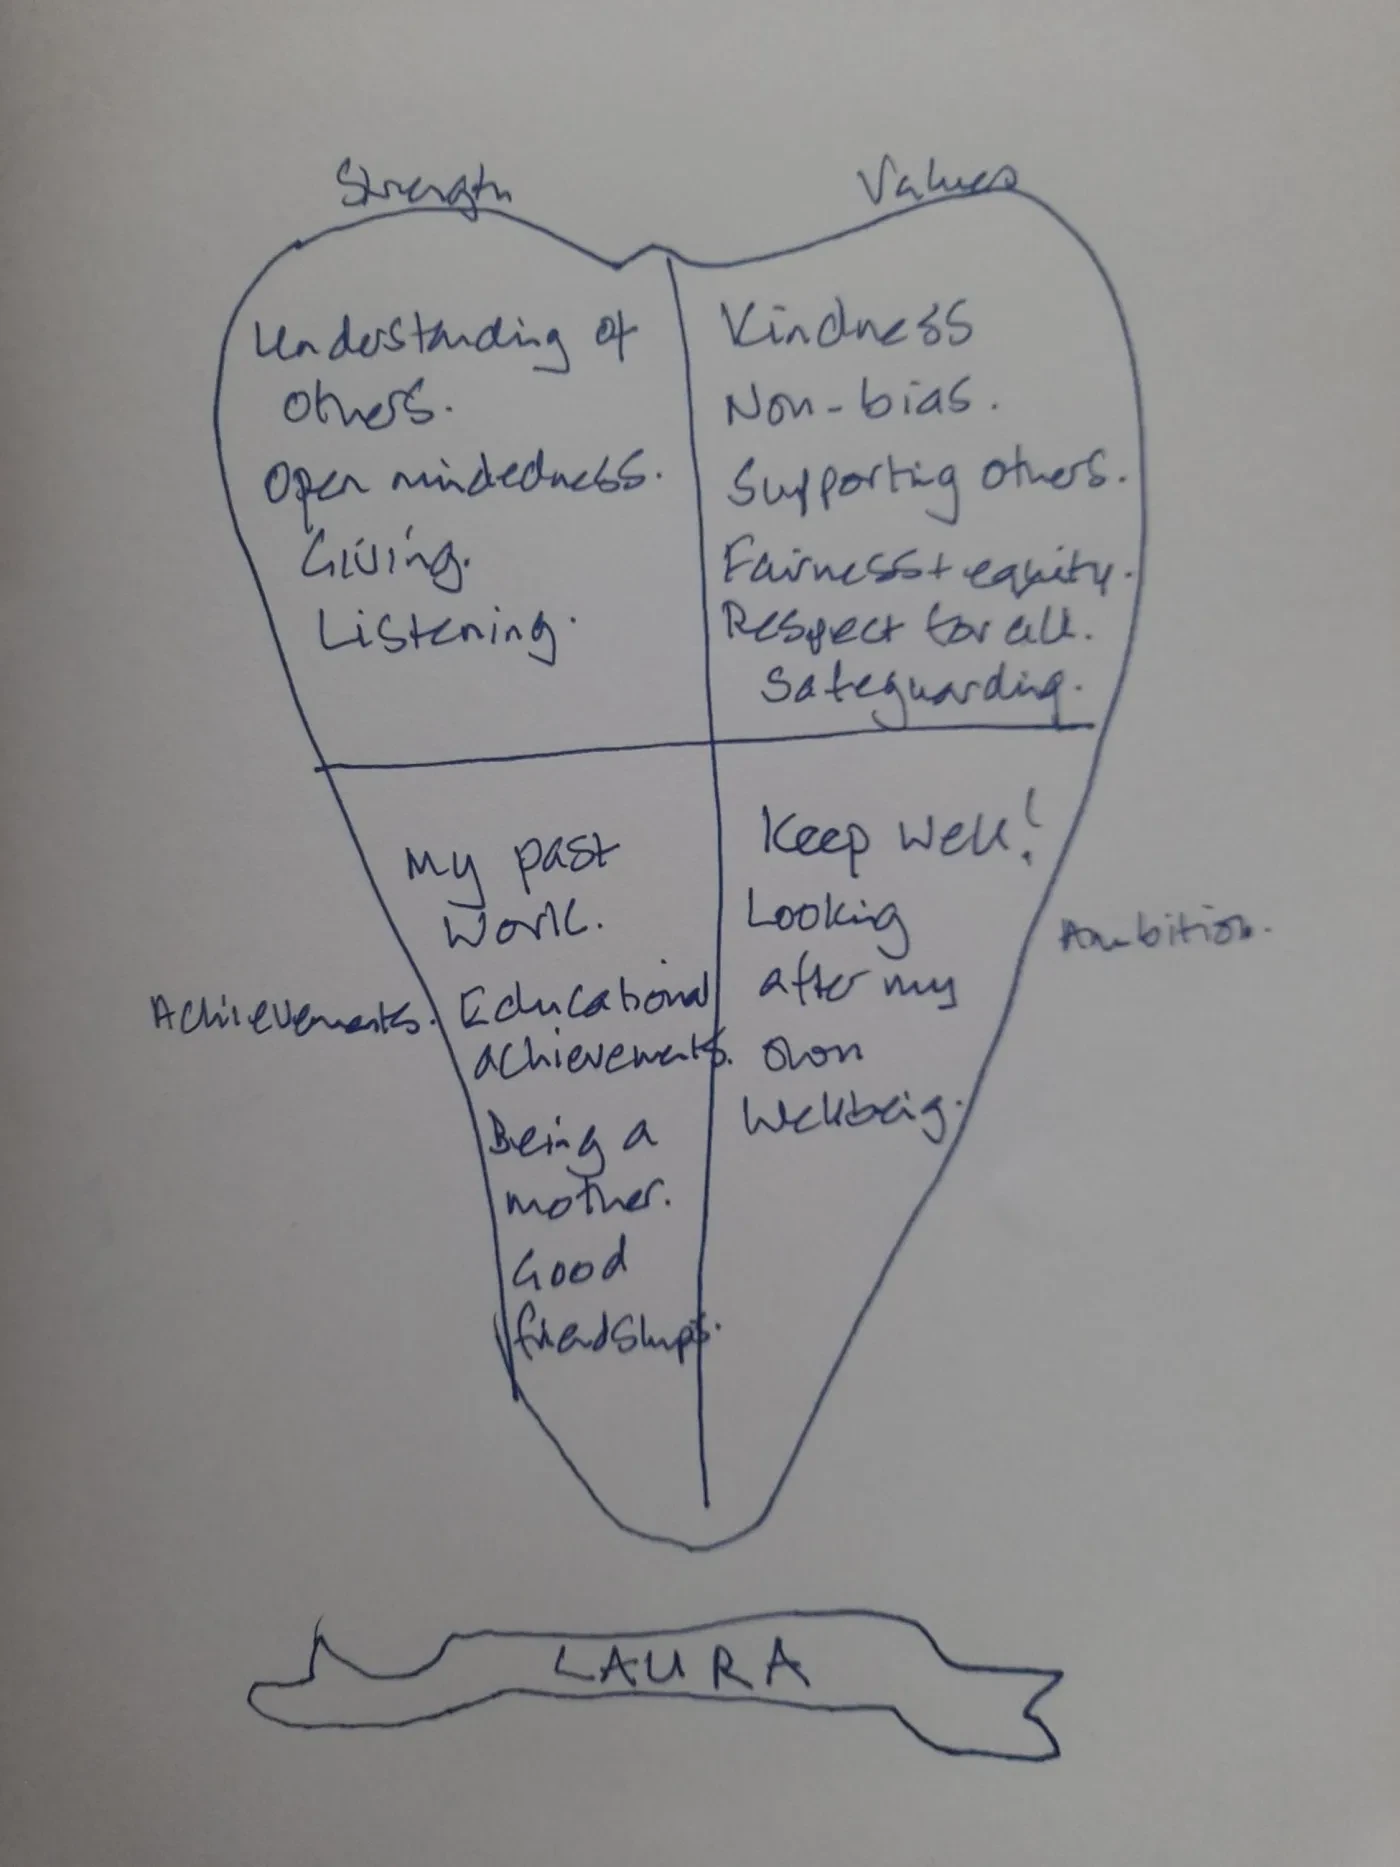 Strength
Values
Understanding of
others.
Open mindedness.
Giving.
Listening.
Kindness
Non-bias.
Supporting others.
Fairness + equity.
Respect for all.
Safeguarding.
Achievements.
My past
work.
Educational
achievements.
Being a
mother.
Good
friendships.
Ambition.
Keep well!
Looking
after my
own
wellbeing.
LAURA